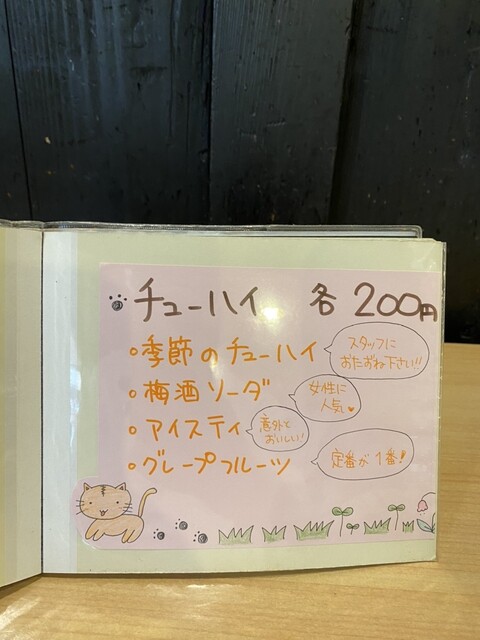 チューハイ 各200円
・季節のチューハイ
スタッフに
おたずね下さい!!
・梅酒ソーダ
女性に
人気♥
・アイスティ
意外と
おいしい!
・グレープフルーツ
定番が1番!